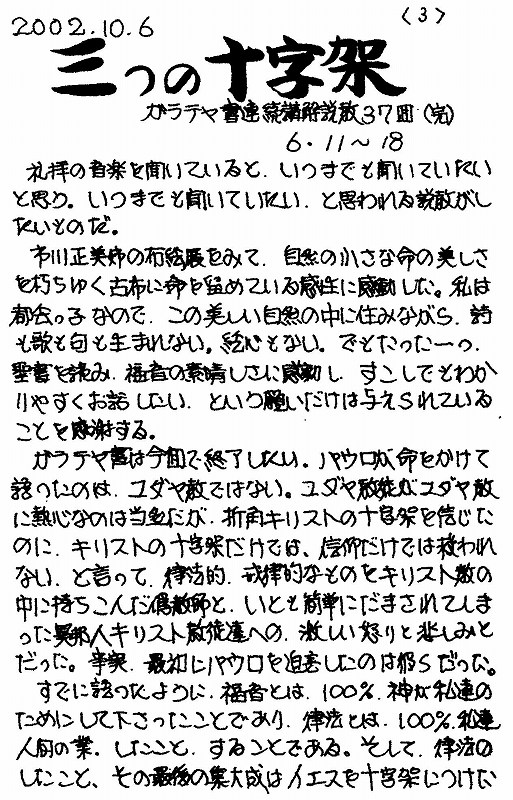 2002.10.6
〈3〉
三つの十字架
ガラテヤ書連続講解説教37回(完)
6・11〜18
礼拝の音楽を聞いていると、いつまでも聞いていたい
と思う。いつまでも聞いていたい、と思われる説教がし
たいものだ。
市川正美姉の布絵展をみて、自然の小さな命の美しさ
を朽ちゆく古布に命を留めている感性に感動した。私は
都会っ子なので、この美しい自然の中に住みながら、詩
も歌も句も生まれない。絵心もない。でもたった一つ、
聖書を読み、福音の素晴しさに感動し、すこしでもわか
りやすくお話したい、という願いだけは与えられている
ことを感謝する。
ガラテヤ書は今回で終了したい。パウロが命をかけて
語ったのは、ユダヤ教ではない。ユダヤ教徒がユダヤ教
に熱心なのは当然だが、折角キリストの十字架を信じた
のに、キリストの十字架だけでは、信仰だけでは救われ
ない、と言って、律法的、戒律的なものをキリスト教の
中に持ちこんだ偽教師と、いとも簡単にだまされてしま
った異邦人キリスト教徒達への、激しい怒りと悲しみと
だった。事実、最初にパウロを迫害したのは彼らだった。
すでに語ったように、福音とは、100%、神が私達の
ためにして下さったことであり、律法とは、100%私達
人間の業、したこと、することである。そして、律法の
したこと、その最後の集大成はイエスを十字架につけた